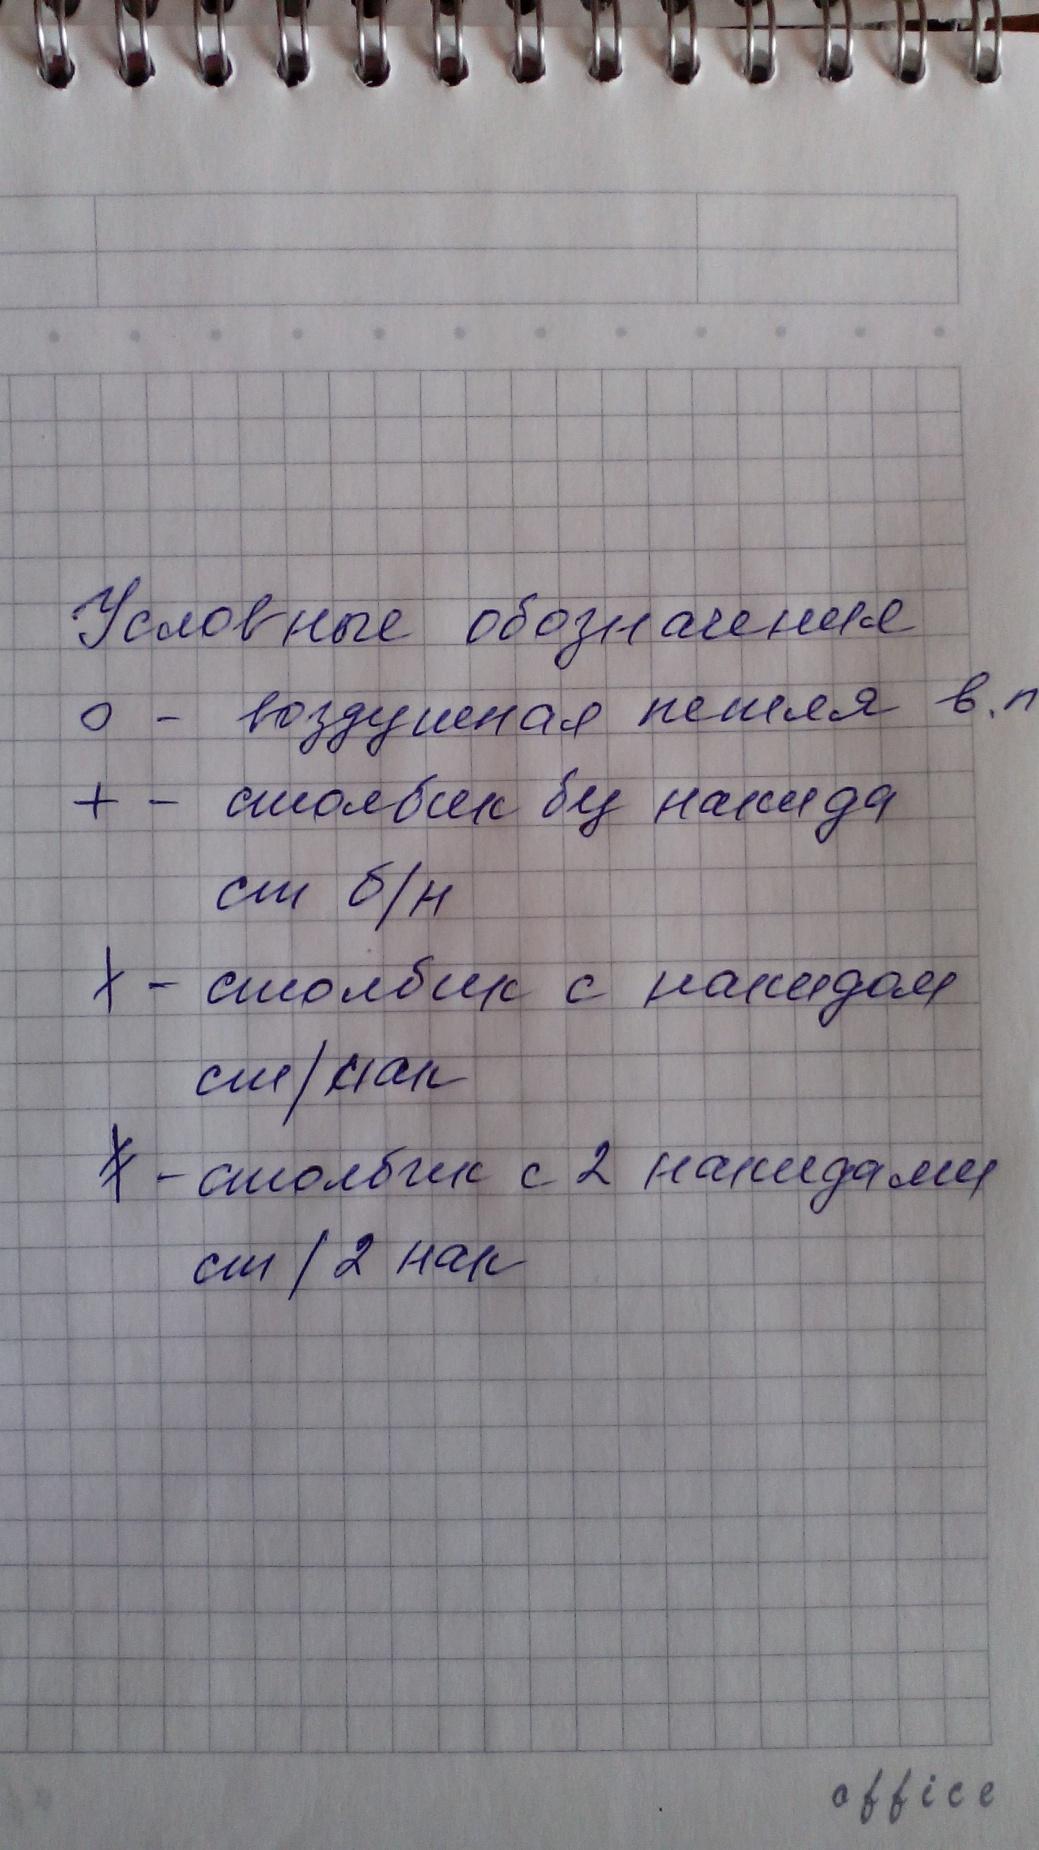 Условные обозначения
о - воздушная петля в.п
+ - столбик без накида
ст б/н
ꓕ - столбик с накидом
ст/нак
ꓕ - столбик с 2 накидами
ст/2 нак
office